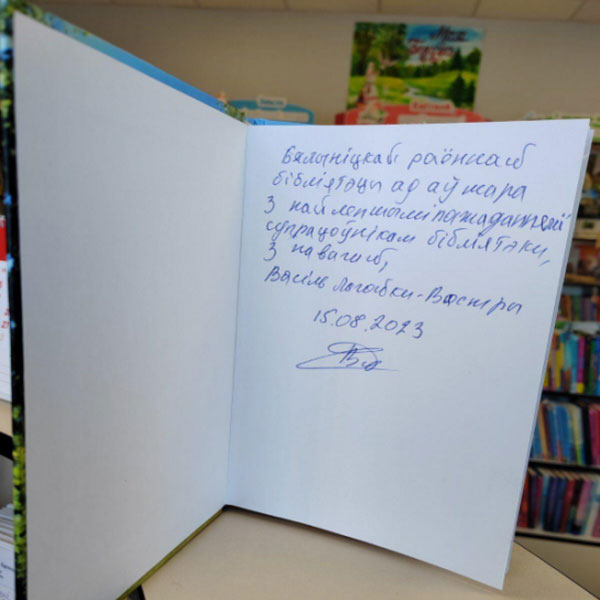 Бялыніцкай раённай
бібліятэцы ад аўтара
З найлепшымі пажаданнямі
супрацоўнікам бібліятэкі,
З павагай,
Васіль
15.08.2023